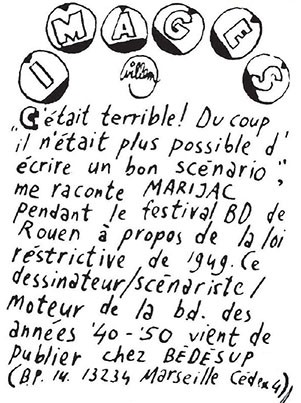 IMAGES
Willem
C'était terrible! Du coup
"il n'était plus possible d'
écrire un bon scénario",
me raconte MARIJAC
pendant le festival BD de
Rouen à propos de la loi
réstrictive de 1949. Ce
dessinateur/scénariste/
Moteur de la b.d. des
années '40-'50 vient de
publier chez BÉDÉSUP
(B.P. 14. 13234 Marseille Cédex 4),